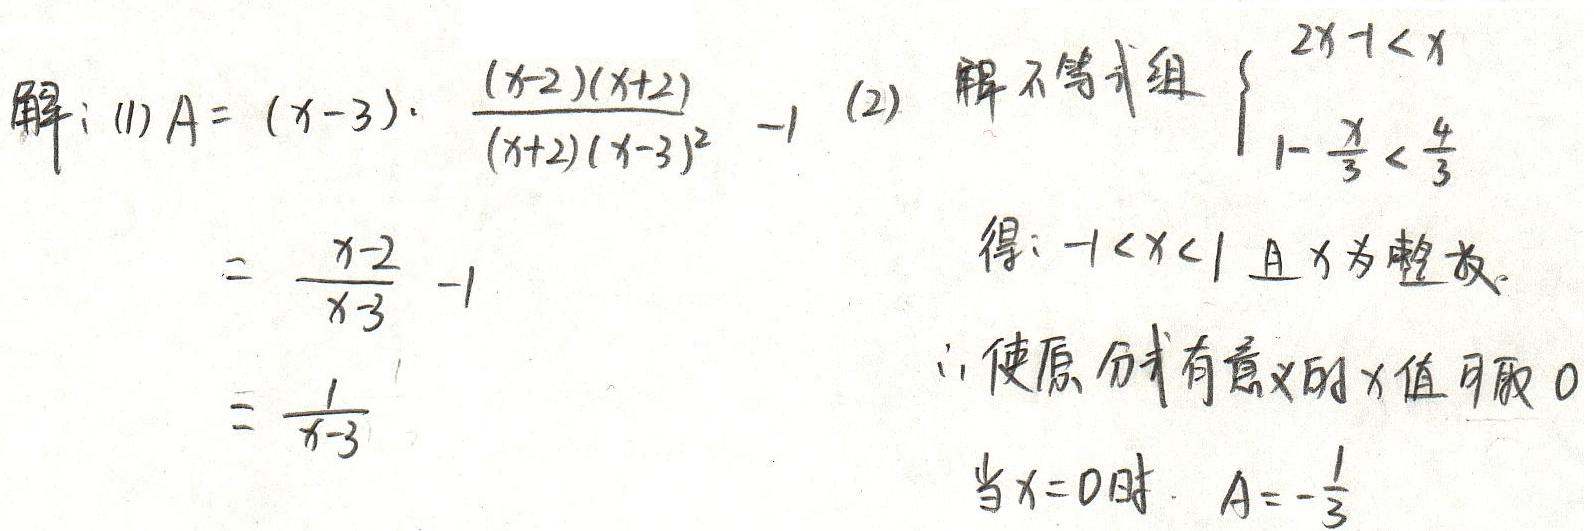 解：(1) A = (x-3)· \frac{(x-2)(x+2)}{(x+2)(x-3)^2} -1
= \frac{x-2}{x-3} -1
= \frac{1}{x-3}
(2) 解不等式组 \begin{cases} 2x-1<x \\ 1-\frac{x}{3}<\frac{4}{3} \end{cases}
得：-1<x<1 且 x 为整数.
∴ 使原分式有意义的 x 值可取 0
当 x=0 时. A=-\frac{1}{3}